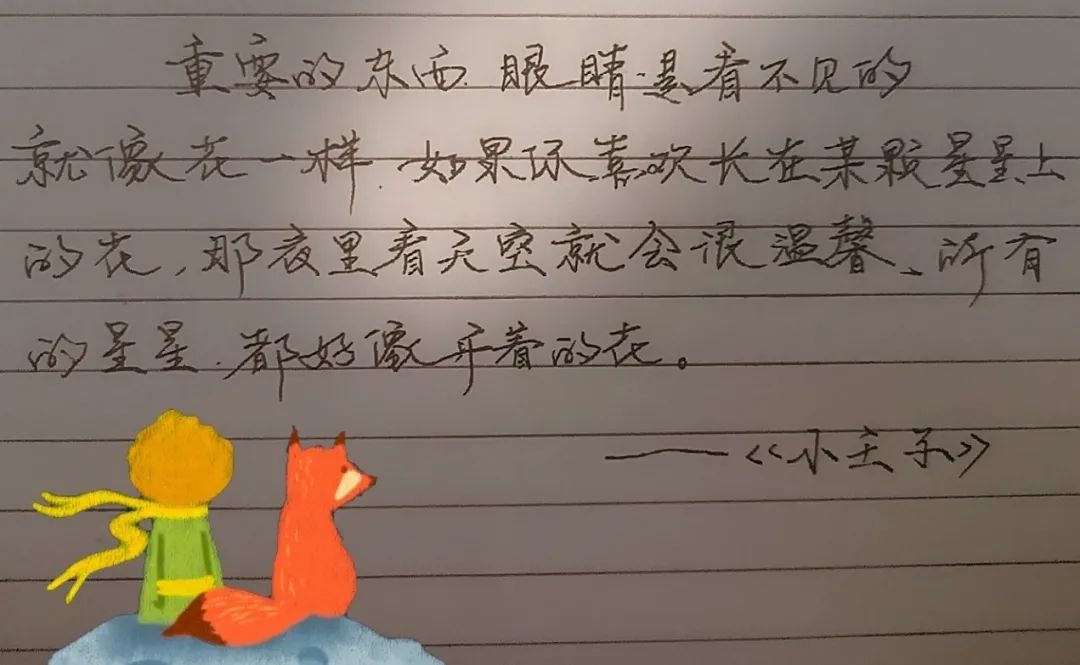 重要的东西.眼睛是看不见的
就像花一样.如果你喜欢长在某颗星星上
的花,那夜里看天空就会很温馨、所有
的星星.都好像开着的花。
——《小王子》